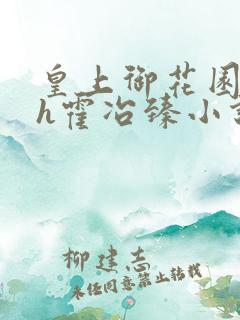 皇上御花园
h霍冶臻小
柳建志
未经同意禁止转载